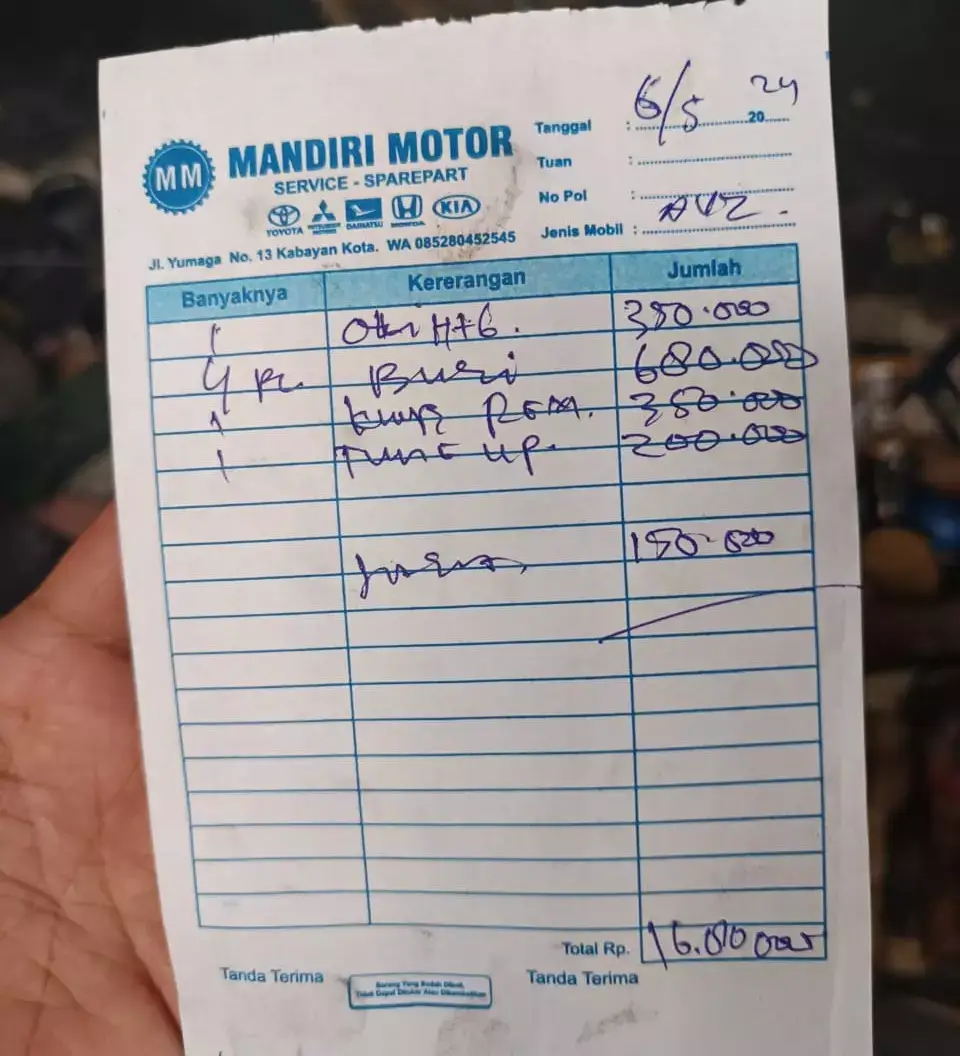 MM
MANDIRI MOTOR
SERVICE - SPAREPART
TOYOTA MITSUBISHI MOTORS DAIHATSU HONDA KIA
Jl. Yumaga No. 13 Kabayan Kota. WA 085280452545
Tanggal : 6/5 2024
Tuan :
No Pol :
Jenis Mobil : AVZ.
Banyaknya Kererangan Jumlah
1 350.000
4 Pc Busi 680.000
1 REM. 350.000
1 Tune up. 200.000
150.000
Total Rp.
Tanda Terima
Barang Yang Sudah Dibeli,
Tidak Dapat Ditukar Atau Dikembalikan
Tanda Terima